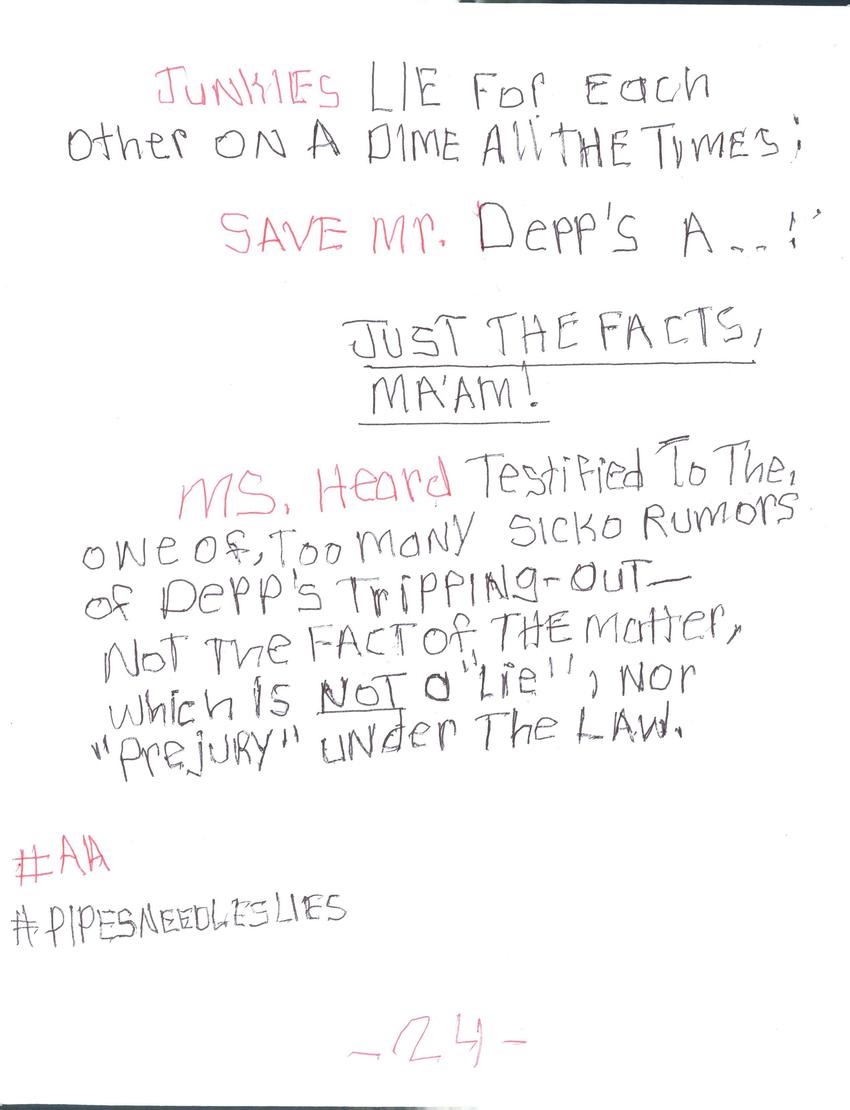 JUNKIES LIE For Each
Other ON A DIME All THE TIMES;
SAVE Mr. Depp's A _ _ !'
JUST THE FACTS,
MA'AM!
MS. Heard Testified To The,
one of, Too many SICKO Rumors
of Depp's TriPPING-OUT—
Not The FACT of, THE Matter,
which is NOT a "Lie", Nor
"PrejURY" UNder The LAW.
#AA
#PIPESNEEDLESLIES
-24-